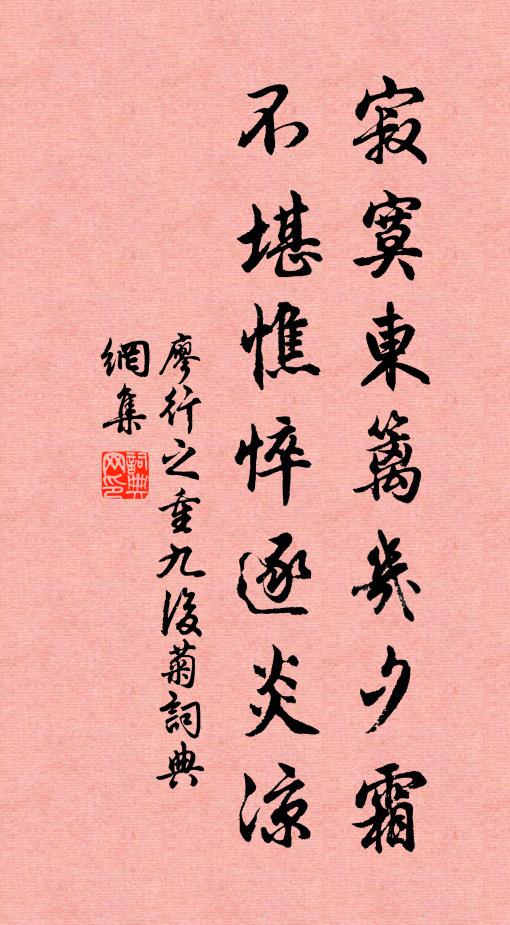 寂寞東籬幾夕霜
不堪憔悴逐炎涼
廖行之重九後菊詞典
網集
詞典網印